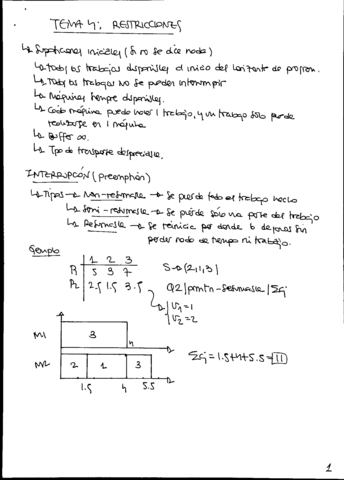 TEMA 4: RESTRICCIONES
↳ Suposiciones iniciales (si no se dice nada)
↳ Todos los trabajos disponibles al inicio del horizonte de program.
↳ Todos los trabajos no se pueden interrumpir
↳ Máquinas siempre disponibles.
↳ Cada máquina puede hacer 1 trabajo, y un trabajo sólo puede
realizarse en 1 máquina
↳ Buffer ∞.
↳ Tipo de transporte despreciable.
INTERRUPCIÓN (preemption)
↳ Tipos → Non-resumable → Se pierde todo el trabajo hecho
↳ Semi-resumable → Se pierde sólo una parte del trabajo
↳ Resumable → Se reinicia por donde lo dejamos sin
perder nada de tiempo ni trabajo.
Ejemplo
1 2 3
P1 5 3 7
P2 2.5 1.5 3.5
S→(2,1,3)
Q2|pmtn-resumable|Σcj
V1=1
V2=2
M1 3
4
M2 2 1 3
1.5 4 5.5
Σcj = 1.5+4+5.5 = 11
1